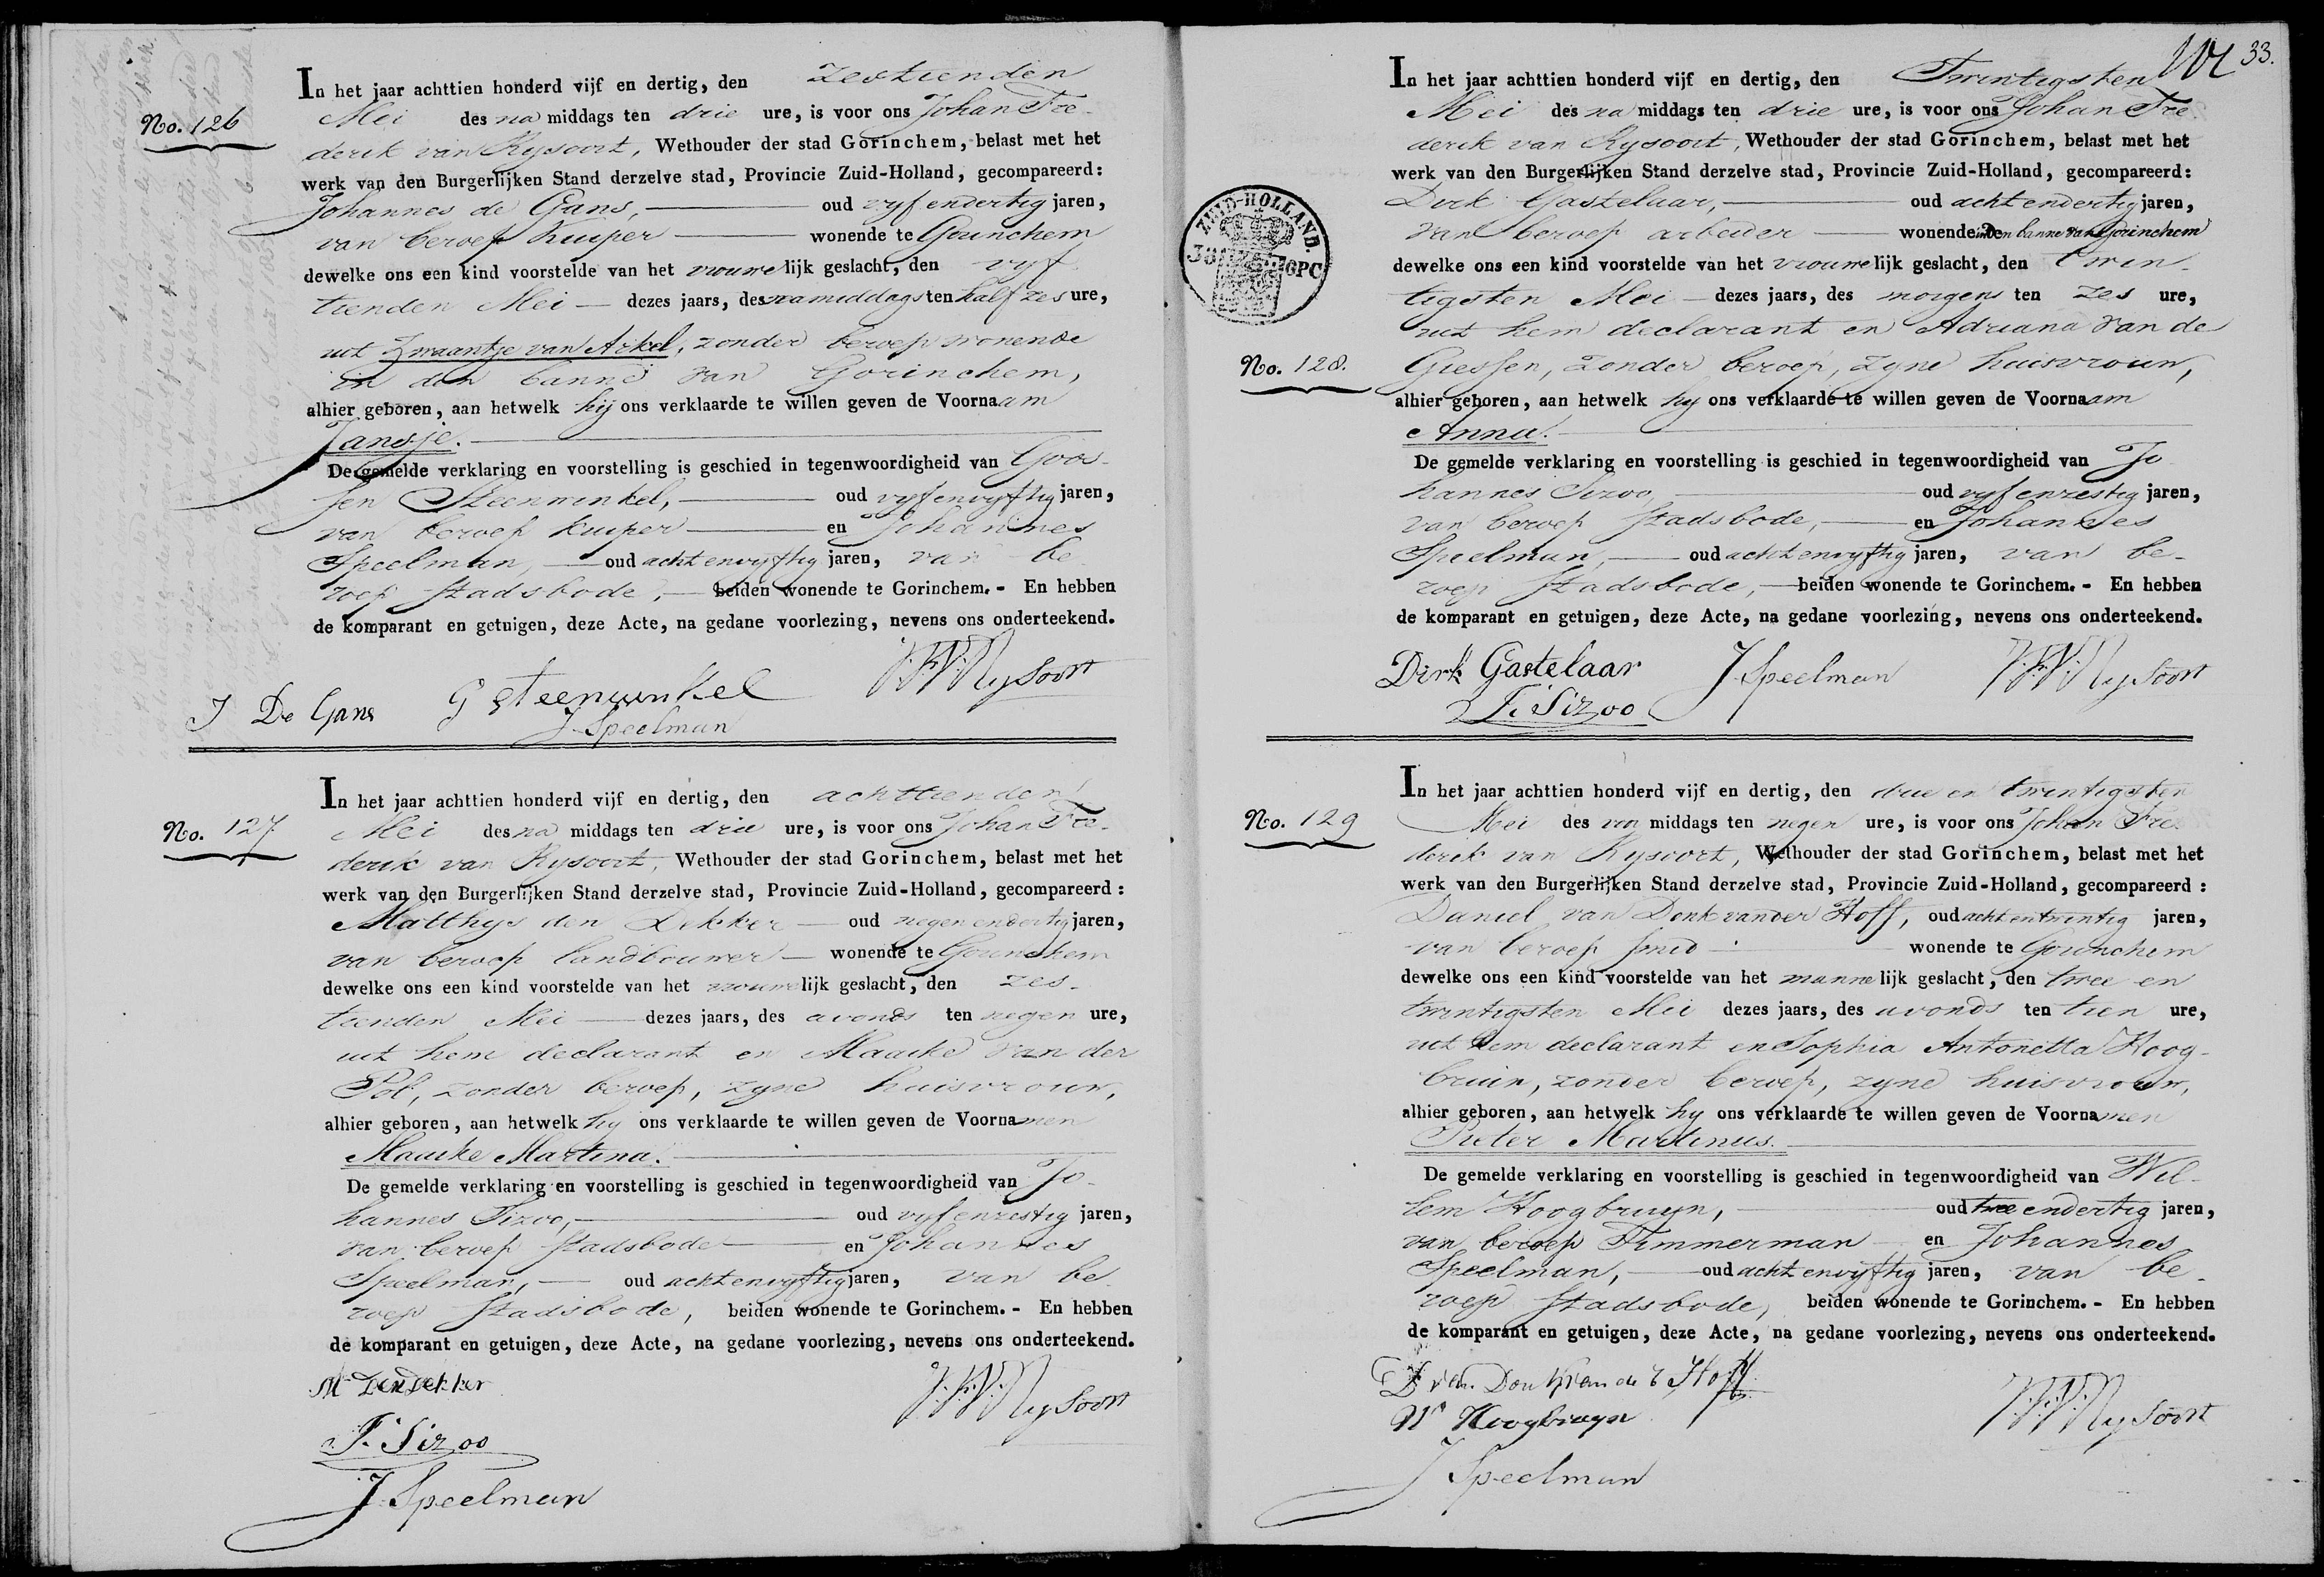 No. 126
In het jaar achttien honderd vijf en dertig, den zestienden
Mei des na middags ten drie ure, is voor ons Johan Fre-
derik van Rysoort, Wethouder der stad Gorinchem, belast met het
werk van den Burgerlijken Stand derzelve stad, Provincie Zuid-Holland, gecompareerd:
Johannes de Gans, oud vyf endertig jaren,
van beroep kuiper wonende te Gorinchem
dewelke ons een kind voorstelde van het vrouwelijk geslacht, den vyf
tienden Mei dezes jaars, des namiddags ten half zes ure,
uit Zwaantje van Arkel, zonder beroep wonende
in den banne van Gorinchem,
alhier geboren, aan hetwelk hij ons verklaarde te willen geven de Voornaam
Jansje.
De gemelde verklaring en voorstelling is geschied in tegenwoordigheid van Goos-
sen Steenwinkel, oud vyfenvyftig jaren,
van beroep kuiper en Johannes
Speelman, oud achtenvyftig jaren, van be-
roep stadsbode, beiden wonende te Gorinchem. - En hebben
de komparant en getuigen, deze Acte, na gedane voorlezing, nevens ons onderteekend.
J De Gans G Steenwinkel J.F.V. Rysoort
J Speelman
No. 127
In het jaar achttien honderd vijf en dertig, den achttienden
Mei des na middags ten drie ure, is voor ons Johan Fre-
derik van Rysoort, Wethouder der stad Gorinchem, belast met het
werk van den Burgerlijken Stand derzelve stad, Provincie Zuid-Holland, gecompareerd:
Matthys den Dekker oud negen endertig jaren,
van beroep landbouwer wonende te Gorinchem
dewelke ons een kind voorstelde van het vrouwelijk geslacht, den zes-
tienden Mei dezes jaars, des avonds ten negen ure,
uit hem declarant en Maaike van der
Pol, zonder beroep, zyne huisvrouw,
alhier geboren, aan hetwelk hy ons verklaarde te willen geven de Voornamen
Maaike Martina.
De gemelde verklaring en voorstelling is geschied in tegenwoordigheid van Jo-
hannes Sizoo, oud vyfenzestig jaren,
van beroep stadsbode en Johannes
Speelman, oud achtenvyftig jaren, van be-
roep stadsbode, beiden wonende te Gorinchem. - En hebben
de komparant en getuigen, deze Acte, na gedane voorlezing, nevens ons onderteekend.
M Den Dekker J.F.V. Rysoort
J. Sizoo
J Speelman
33.
ZUID-HOLLAND.
No. 128.
In het jaar achttien honderd vijf en dertig, den Twintigsten
Mei des na middags ten drie ure, is voor ons Johan Fre
derik van Rysoort, Wethouder der stad Gorinchem, belast met het
werk van den Burgerlijken Stand derzelve stad, Provincie Zuid-Holland, gecompareerd:
Dirk Gastelaar, oud acht endertig jaren,
van beroep arbeider wonende in den banne van Gorinchem
dewelke ons een kind voorstelde van het vrouwelijk geslacht, den twin-
tigsten Mei dezes jaars, des morgens ten zes ure,
uit hem declarant en Adriana van de
Giessen, zonder beroep, zyne huisvrouw,
alhier geboren, aan hetwelk hy ons verklaarde te willen geven de Voornaam
Anna.
De gemelde verklaring en voorstelling is geschied in tegenwoordigheid van Jo
hannes Sizoo, oud vyfenzestig jaren,
van beroep stadsbode, en Johannes
Speelman, oud achtenvyftig jaren, van be-
roep stadsbode, beiden wonende te Gorinchem. - En hebben
de komparant en getuigen, deze Acte, na gedane voorlezing, nevens ons onderteekend.
Dirk Gastelaar J Speelman J.F.V. Rysoort
J. Sizoo
No. 129
In het jaar achttien honderd vijf en dertig, den drie en twintigsten
Mei des voor middags ten negen ure, is voor ons Johan Fre-
derik van Rysoort, Wethouder der stad Gorinchem, belast met het
werk van den Burgerlijken Stand derzelve stad, Provincie Zuid-Holland, gecompareerd:
Daniel van Donk van der Hoff, oud acht entwintig jaren,
van beroep smid wonende te Gorinchem
dewelke ons een kind voorstelde van het mannelijk geslacht, den twee en
twintigsten Mei dezes jaars, des avonds ten tien ure,
uit hem declarant en Sophia Antonetta Hoog-
bruin, zonder beroep, zyne huisvrouw,
alhier geboren, aan hetwelk hy ons verklaarde te willen geven de Voornamen
Pieter Martinus.
De gemelde verklaring en voorstelling is geschied in tegenwoordigheid van Wil-
lem Hoogbruyn, oud twee endertig jaren,
van beroep Timmerman en Johannes
Speelman, oud acht envyftig jaren, van be-
roep stadsbode, beiden wonende te Gorinchem. - En hebben
de komparant en getuigen, deze Acte, na gedane voorlezing, nevens ons onderteekend.
D van Donk van der Hoff
Wm Hoogbruyn J.F.V. Rysoort
J Speelman